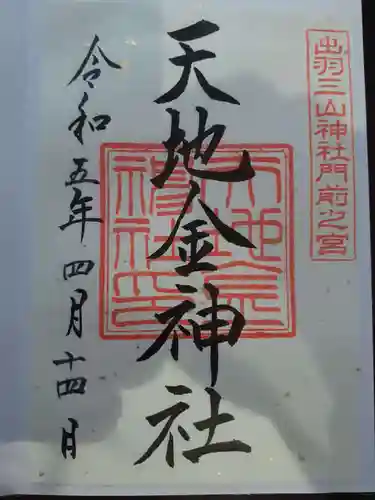 出羽三山神社門前之宮
天地金神社
令和五年四月十四日